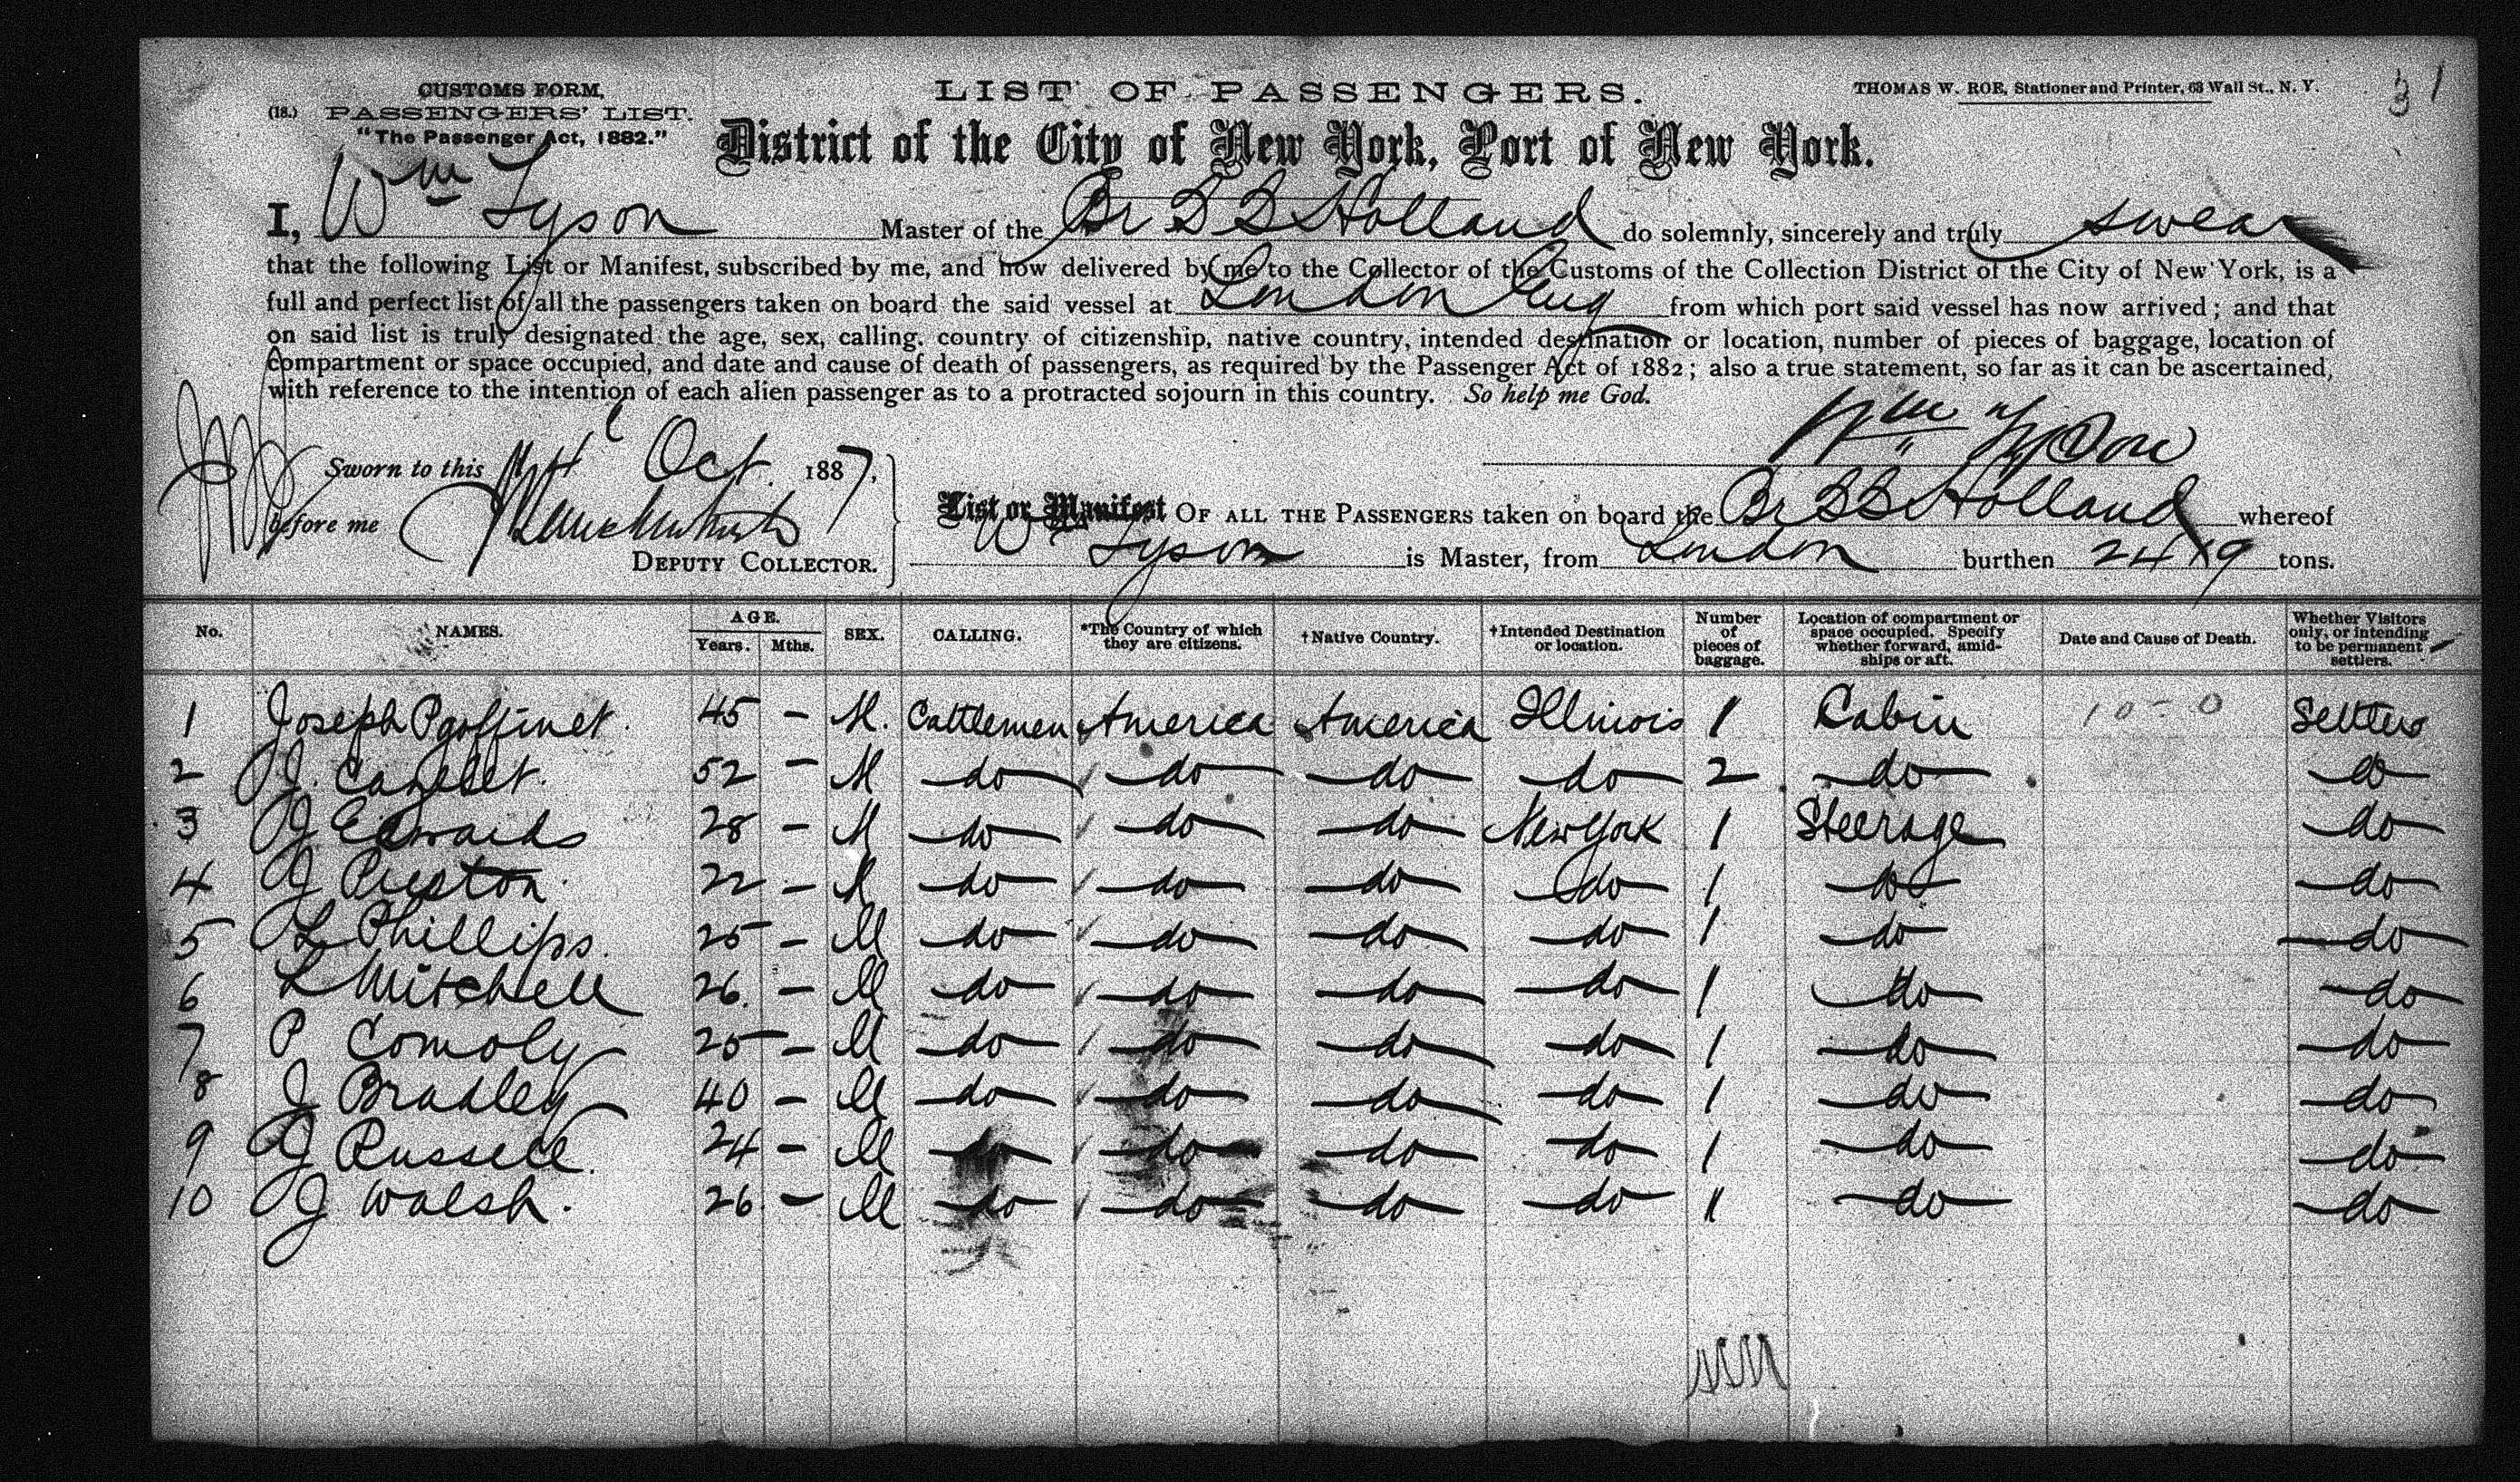 CUSTOMS FORM.
(18.) PASSENGERS' LIST.
"The Passenger Act, 1882."
LIST OF PASSENGERS.
THOMAS W. ROE, Stationer and Printer, 63 Wall St., N. Y.
31
District of the City of New York, Port of New York.
I, Wm Tyson Master of the Br S S Holland do solemnly, sincerely and truly swear
that the following List or Manifest, subscribed by me, and now delivered by me to the Collector of the Customs of the Collection District of the City of New York, is a
full and perfect list of all the passengers taken on board the said vessel at London Eng from which port said vessel has now arrived; and that
on said list is truly designated the age, sex, calling, country of citizenship, native country, intended destination or location, number of pieces of baggage, location of
compartment or space occupied, and date and cause of death of passengers, as required by the Passenger Act of 1882; also a true statement, so far as it can be ascertained,
with reference to the intention of each alien passenger as to a protracted sojourn in this country. So help me God.
Wm Tyson
Sworn to this Oct. 1887,
before me
DEPUTY COLLECTOR.
List or Manifest OF ALL THE PASSENGERS taken on board the Br S S Holland whereof
Wm Tyson is Master, from London burthen tons.
No. NAMES. AGE. Years. Mths. SEX. CALLING. *The Country of which they are citizens. †Native Country. †Intended Destination or location. Number of pieces of baggage. Location of compartment or space occupied. Specify whether forward, amidships or aft. Date and Cause of Death. Whether Visitors only, or intending to be permanent settlers.
1 Joseph Pgoffinet. 45 - M. Cattlemen America America Illinois 1 Cabin 10-0 Settlers
2 J. 52 - M do do do do 2 do do
3 J Edwards 28 - M do do do New York 1 Steerage do
4 J Preston 22 - M do do do do 1 do do
5 L Phillips. 25 - M do do do do 1 do do
6 L Mitchell 26. - M do do do do 1 do do
7 P Comoly 25 - M do do do do 1 do do
8 J Bradley 40 - M do do do do 1 do do
9 J Russell. 24 - M do do do do 1 do do
10 J Walsh. 26. - M do do do do 1 do do